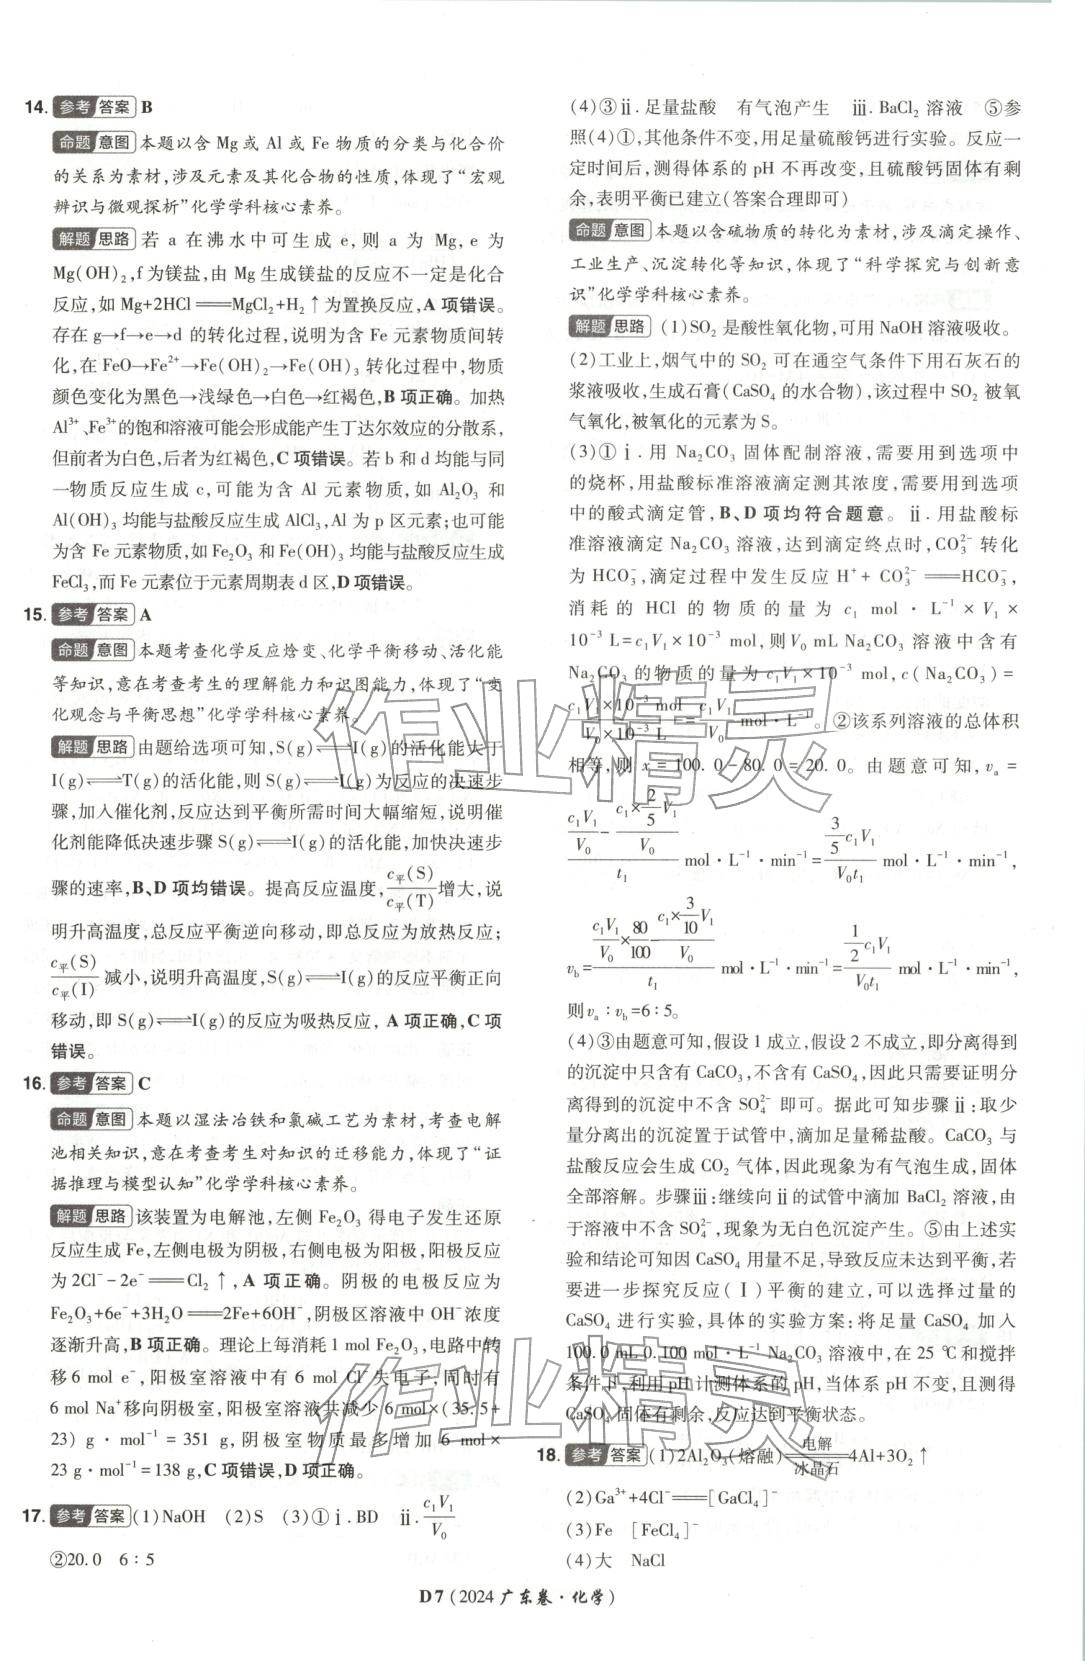 14. 参考 答案 B
命题 意图 本题以含 Mg 或 Al 或 Fe 物质的分类与化合价
的关系为素材,涉及元素及其化合物的性质,体现了“宏观
辨识与微观探析”化学学科核心素养。
解题 思路 若 a 在沸水中可生成 e,则 a 为 Mg,e 为
Mg(OH)₂,f为镁盐,由 Mg 生成镁盐的反应不一定是化合
反应,如 Mg+2HCl══MgCl₂+H₂↑为置换反应,A 项错误。
存在 g→f→e→d 的转化过程,说明为含 Fe 元素物质间转
化,在 FeO→Fe²⁺→Fe(OH)₂→Fe(OH)₃ 转化过程中,物质
颜色变化为黑色→浅绿色→白色→红褐色,B 项正确。加热
Al³⁺、Fe³⁺的饱和溶液可能会形成能产生丁达尔效应的分散系,
但前者为白色,后者为红褐色,C 项错误。若 b 和 d 均能与同
一物质反应生成 c,可能为含 Al 元素物质,如 Al₂O₃ 和
Al(OH)₃ 均能与盐酸反应生成 AlCl₃,Al 为 p 区元素;也可能
为含 Fe 元素物质,如 Fe₂O₃ 和 Fe(OH)₃ 均能与盐酸反应生成
FeCl₃,而 Fe 元素位于元素周期表 d 区,D 项错误。
15. 参考 答案 A
命题 意图 本题考查化学反应焓变、化学平衡移动、活化能
等知识,意在考查考生的理解能力和识图能力,体现了“变
化观念与平衡思想”化学学科核心素养。
解题 思路 由题给选项可知,S(g)⇌I(g)的活化能大于
I(g)⇌T(g)的活化能,则 S(g)⇌I(g)为反应的决速步
骤,加入催化剂,反应达到平衡所需时间大幅缩短,说明催
化剂能降低决速步骤 S(g)⇌I(g)的活化能,加快决速步
骤的速率,B、D 项均错误。提高反应温度,c平(S)/c平(T)增大,说
明升高温度,总反应平衡逆向移动,即总反应为放热反应;
c平(S)/c平(I)减小,说明升高温度,S(g)⇌I(g)的反应平衡正向
移动,即 S(g)⇌I(g)的反应为吸热反应,A 项正确,C 项
错误。
16. 参考 答案 C
命题 意图 本题以湿法冶铁和氯碱工艺为素材,考查电解
池相关知识,意在考查考生对知识的迁移能力,体现了“证
据推理与模型认知”化学学科核心素养。
解题 思路 该装置为电解池,左侧 Fe₂O₃ 得电子发生还原
反应生成 Fe,左侧电极为阴极,右侧电极为阳极,阳极反应
为 2Cl⁻-2e⁻══Cl₂↑,A 项正确。阴极的电极反应为
Fe₂O₃+6e⁻+3H₂O══2Fe+6OH⁻,阴极区溶液中 OH⁻浓度
逐渐升高,B 项正确。理论上每消耗 1 mol Fe₂O₃,电路中转
移 6 mol e⁻,阳极室溶液中有 6 mol Cl⁻失电子,同时有
6 mol Na⁺移向阴极室,阳极室溶液共减少 6 mol×(35.5+
23) g·mol⁻¹=351 g,阴极室物质最多增加 6 mol×
23 g·mol⁻¹=138 g,C 项错误,D 项正确。
17. 参考 答案 (1)NaOH (2)S (3)①ⅰ.BD ⅱ.c₁V₁/V₀
②20.0 6∶5
(4)③ⅱ.足量盐酸 有气泡产生 ⅲ.BaCl₂ 溶液 ⑤参
照(4)①,其他条件不变,用足量硫酸钙进行实验。反应一
定时间后,测得体系的 pH 不再改变,且硫酸钙固体有剩
余,表明平衡已建立(答案合理即可)
命题 意图 本题以含硫物质的转化为素材,涉及滴定操作、
工业生产、沉淀转化等知识,体现了“科学探究与创新意
识”化学学科核心素养。
解题 思路 (1)SO₂ 是酸性氧化物,可用 NaOH 溶液吸收。
(2)工业上,烟气中的 SO₂ 可在通空气条件下用石灰石的
浆液吸收,生成石膏(CaSO₄ 的水合物),该过程中 SO₂ 被氧
气氧化,被氧化的元素为 S。
(3)①ⅰ.用 Na₂CO₃ 固体配制溶液,需要用到选项中
的烧杯,用盐酸标准溶液滴定测其浓度,需要用到选项
中的酸式滴定管,B、D 项均符合题意。ⅱ.用盐酸标
准溶液滴定 Na₂CO₃ 溶液,达到滴定终点时,CO₃²⁻ 转化
为 HCO₃⁻,滴定过程中发生反应 H⁺+ CO₃²⁻══HCO₃⁻,
消耗的 HCl 的物质的量为 c₁ mol·L⁻¹×V₁×
10⁻³ L=c₁V₁×10⁻³ mol,则V₀ mL Na₂CO₃ 溶液中含有
Na₂CO₃的物质的量为 c₁V₁×10⁻³ mol,c(Na₂CO₃)=
c₁V₁×10⁻³ mol/V₀×10⁻³ L=c₁V₁/V₀ mol·L⁻¹。②该系列溶液的总体积
相等,则 x=100.0-80.0=20.0。由题意可知,vₐ=
(c₁V₁/V₀-(c₁×2/5V₁)/V₀)/t₁ mol·L⁻¹·min⁻¹=(3/5c₁V₁)/V₀t₁ mol·L⁻¹·min⁻¹,
v_b=(c₁V₁/V₀×80/100-(c₁×3/10V₁)/V₀)/t₁ mol·L⁻¹·min⁻¹=(1/2c₁V₁)/V₀t₁ mol·L⁻¹·min⁻¹,
则vₐ∶v_b=6∶5。
(4)③由题意可知,假设 1 成立,假设 2 不成立,即分离得到
的沉淀中只含有 CaCO₃,不含有 CaSO₄,因此只需要证明分
离得到的沉淀中不含 SO₄²⁻ 即可。据此可知步骤ⅱ:取少
量分离出的沉淀置于试管中,滴加足量稀盐酸。CaCO₃ 与
盐酸反应会生成 CO₂ 气体,因此现象为有气泡生成,固体
全部溶解。步骤ⅲ:继续向ⅱ的试管中滴加 BaCl₂ 溶液,由
于溶液中不含 SO₄²⁻,现象为无白色沉淀产生。⑤由上述实
验和结论可知因 CaSO₄ 用量不足,导致反应未达到平衡,若
要进一步探究反应(Ⅰ)平衡的建立,可以选择过量的
CaSO₄ 进行实验,具体的实验方案:将足量 CaSO₄ 加入
100.0 mL 0.100 mol·L⁻¹ Na₂CO₃ 溶液中,在 25 ℃和搅拌
条件下,利用 pH 计测体系的 pH,当体系 pH 不变,且测得
CaSO₄ 固体有剩余,反应达到平衡状态。
18. 参考 答案 (1)2Al₂O₃(熔融)══电解/冰晶石══4Al+3O₂↑
(2)Ga³⁺+4Cl⁻══[GaCl₄]⁻
(3)Fe [FeCl₄]⁻
(4)大 NaCl
D7(2024 广东卷·化学)
作业精灵
作业精灵